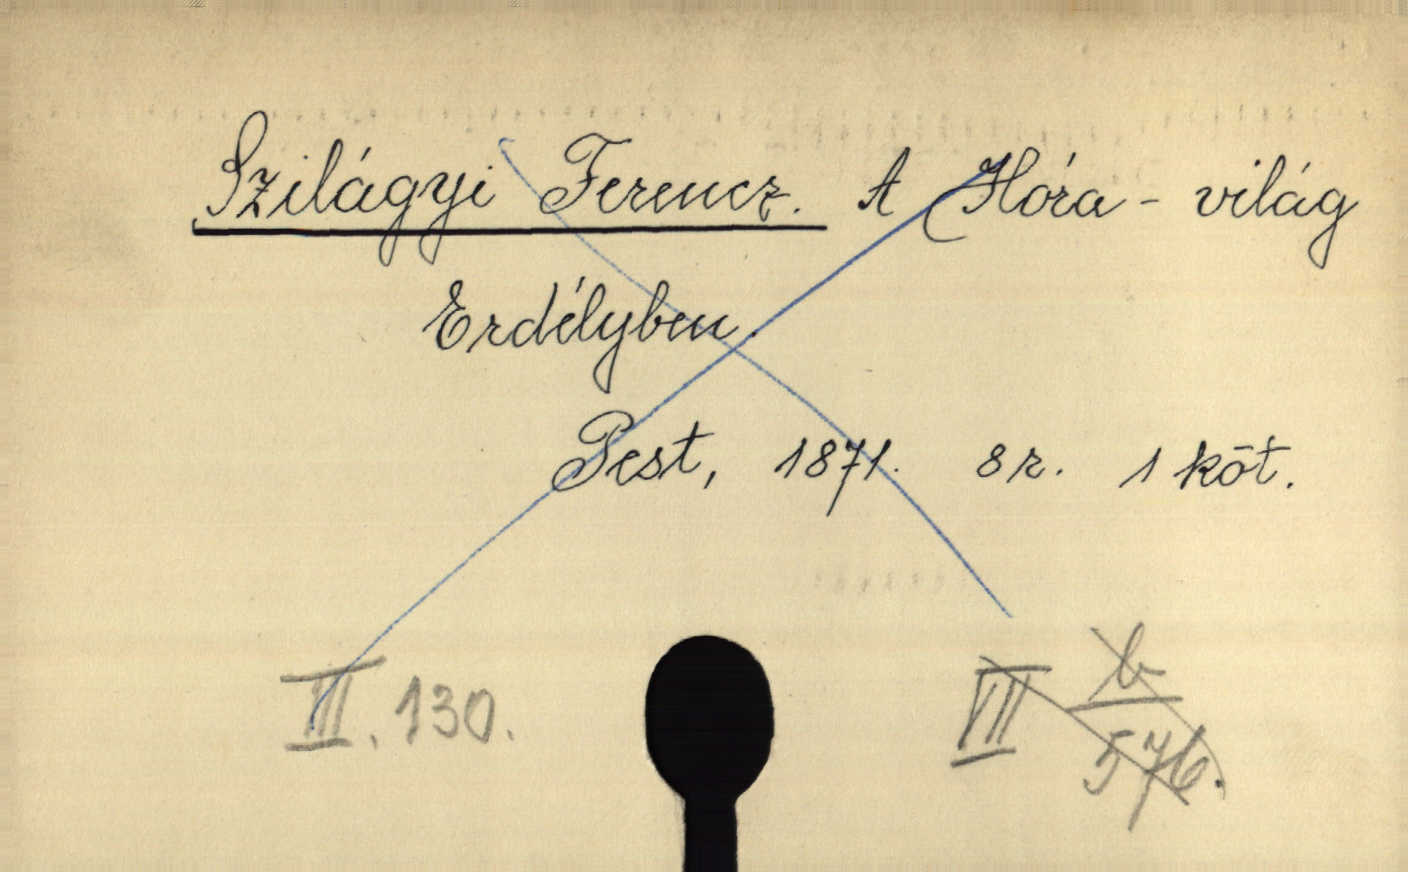 Szilágyi Ferencz. A Hóra - világ
Erdélyben.
Pest, 1871. 8r. 1 köt.
III. 130. VII b/576.